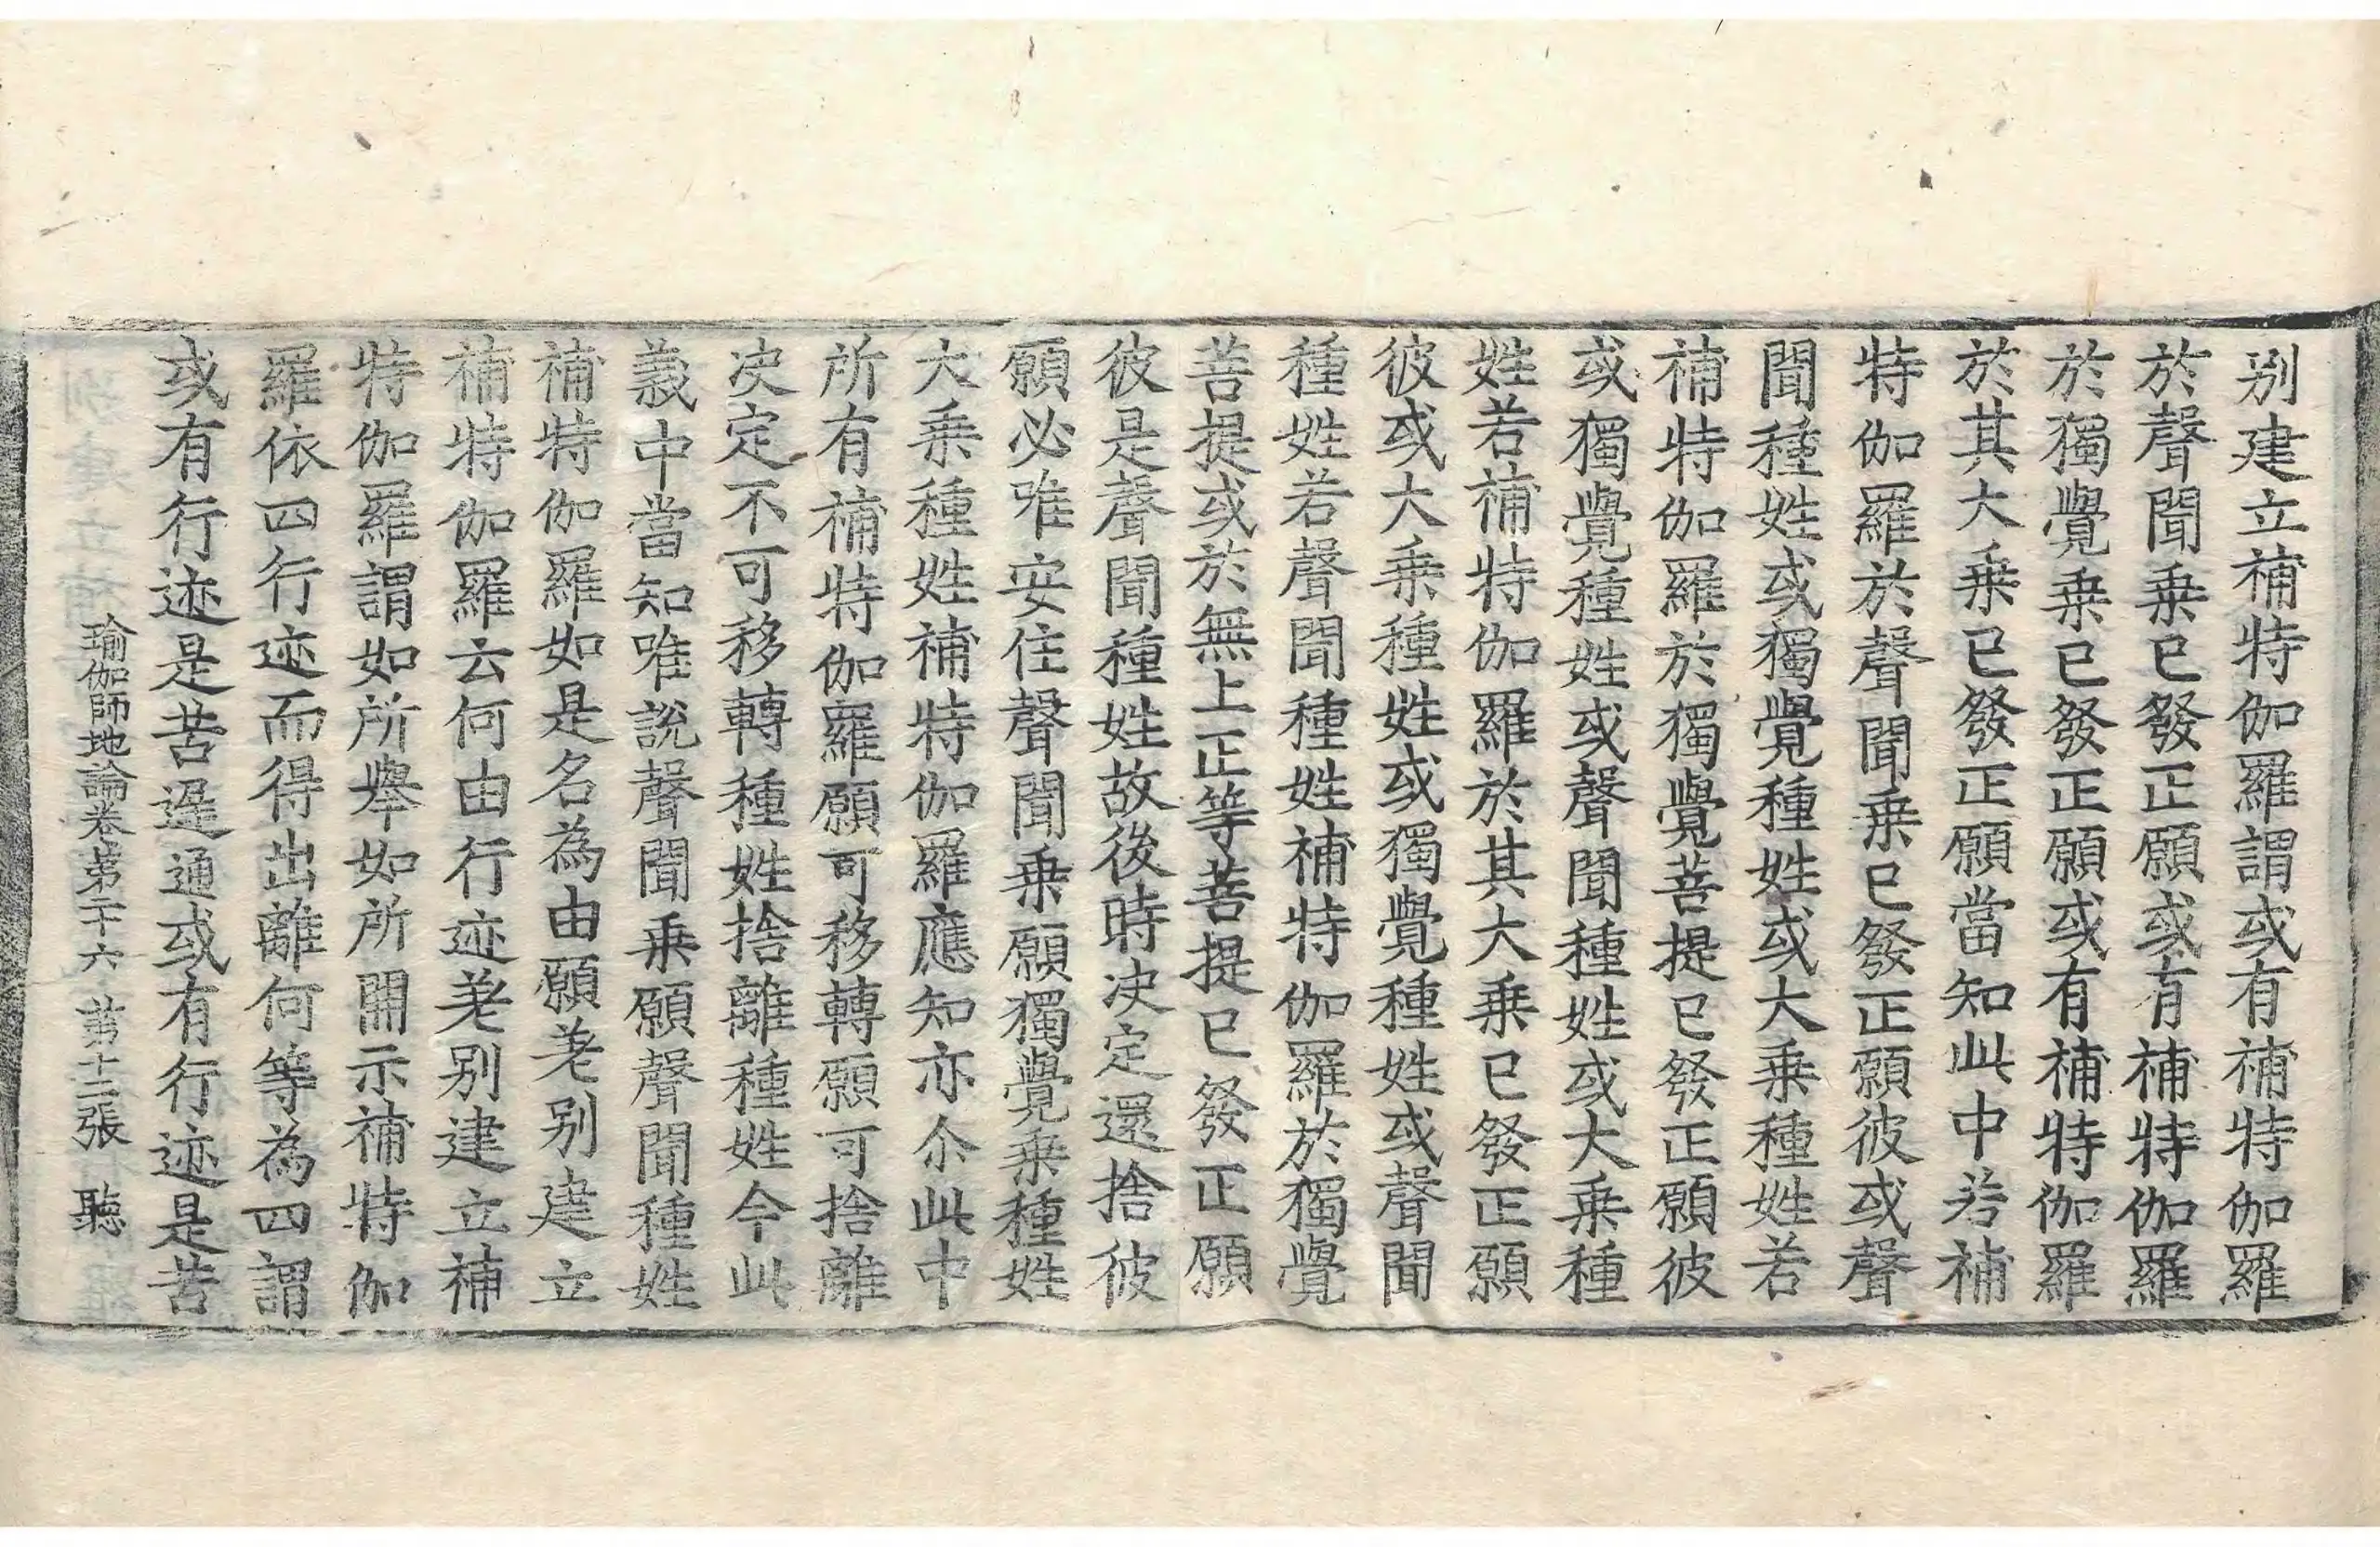 別建立補特伽羅謂或有補特伽羅
於聲聞乗已發正願或有補特伽羅
於獨覺乗已發正願或有補特伽羅
於其大乗已發正願當知此中若補
特伽羅於聲聞乗已發正願彼或聲
聞種姓或獨覺種姓或大乗種姓若
補特伽羅於獨覺菩提已發正願彼
或獨覺種姓或聲聞種姓或大乗種
姓若補特伽羅於其大乗已發正願
彼或大乗種姓或獨覺種姓或聲聞
種姓若聲聞種姓補特伽羅於獨覺
菩提或於無上正等菩提已發正願
彼是聲聞種姓故後時决定還捨彼
願必唯安住聲聞乗願獨覺乗種姓
大乗種姓補特伽羅應知亦尒此中
所有補特伽羅願可移轉願可捨離
决定不可移轉種姓捨離種姓今此
義中當知唯說聲聞乗願聲聞種姓
補特伽羅如是名為由願差别建立
補特伽羅云何由行迹差别建立補
特伽羅謂如所舉如所開示補特伽
羅依四行迹而得出離何等為四謂
或有行迹是苦遅通或有行迹是苦
瑜伽師地論卷第二十六 第十二張 聽